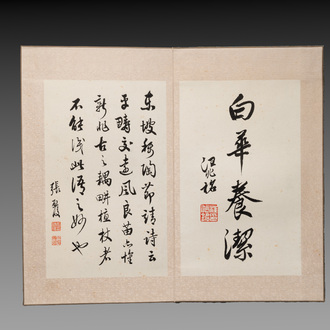 白華養潔
東坡稱陶節靖詩云
平疇交遠風良苗亦懷
新非古之耦耕植杖者
不能識此語之妙也